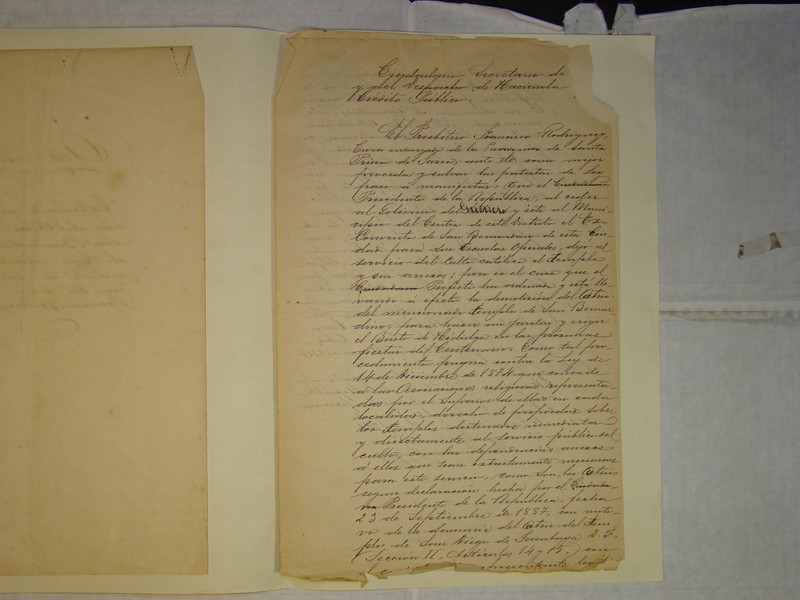 Ciudadano Secretario de
y del Despacho de Hacienda
Crédito Público.
El Presbítero Francisco Rodríguez
Cura encargado de la Parroquia de Santa
Prisca de Taxco, ante Ud. como mejor
proceda y salvas las protestas de Ley
paso a manifestar: Que el Ciudadano
Presidente de la República, al ceder
al Gobierno del Guerrero y éste al Muni-
cipio del Centro de este Distrito el Ex-
Convento de San Bernardino de esta Ciu-
dad para sus Escuelas Oficiales, dejó al
servicio del Culto católico el templo
y sus anexos; pero es el caso que el
Ciudadano Prefecto ha ordenado y está lle-
vando á efecto la demolición del Atrio
del mencionado templo de San Bernar-
dino, para hacer un jardín y erigir
el Busto de Hidalgo en las próximas
fiestas del Centenario. Como tal pro-
cedimiento pugna contra la Ley de
14 de Diciembre de 1874 que concede
a las Asociaciones religiosas representa-
das por el Superior de ellas en cada
localidad, derecho de propiedad sobre
los templos destinados inmediata
y directamente al servicio público del
culto, con las dependencias anexas
á ellos que sean estrictamente necesarias
para este servicio, como son los Atrios
según declaración hecha por el Ciudada-
no Presidente de la República, fecha
23 de Septiembre de 1887, con moti-
vo de la denuncia del atrio del tem-
plo de San Diego de Tacubaya D. F.
(Sección II. Artículos 14 y 15.) con